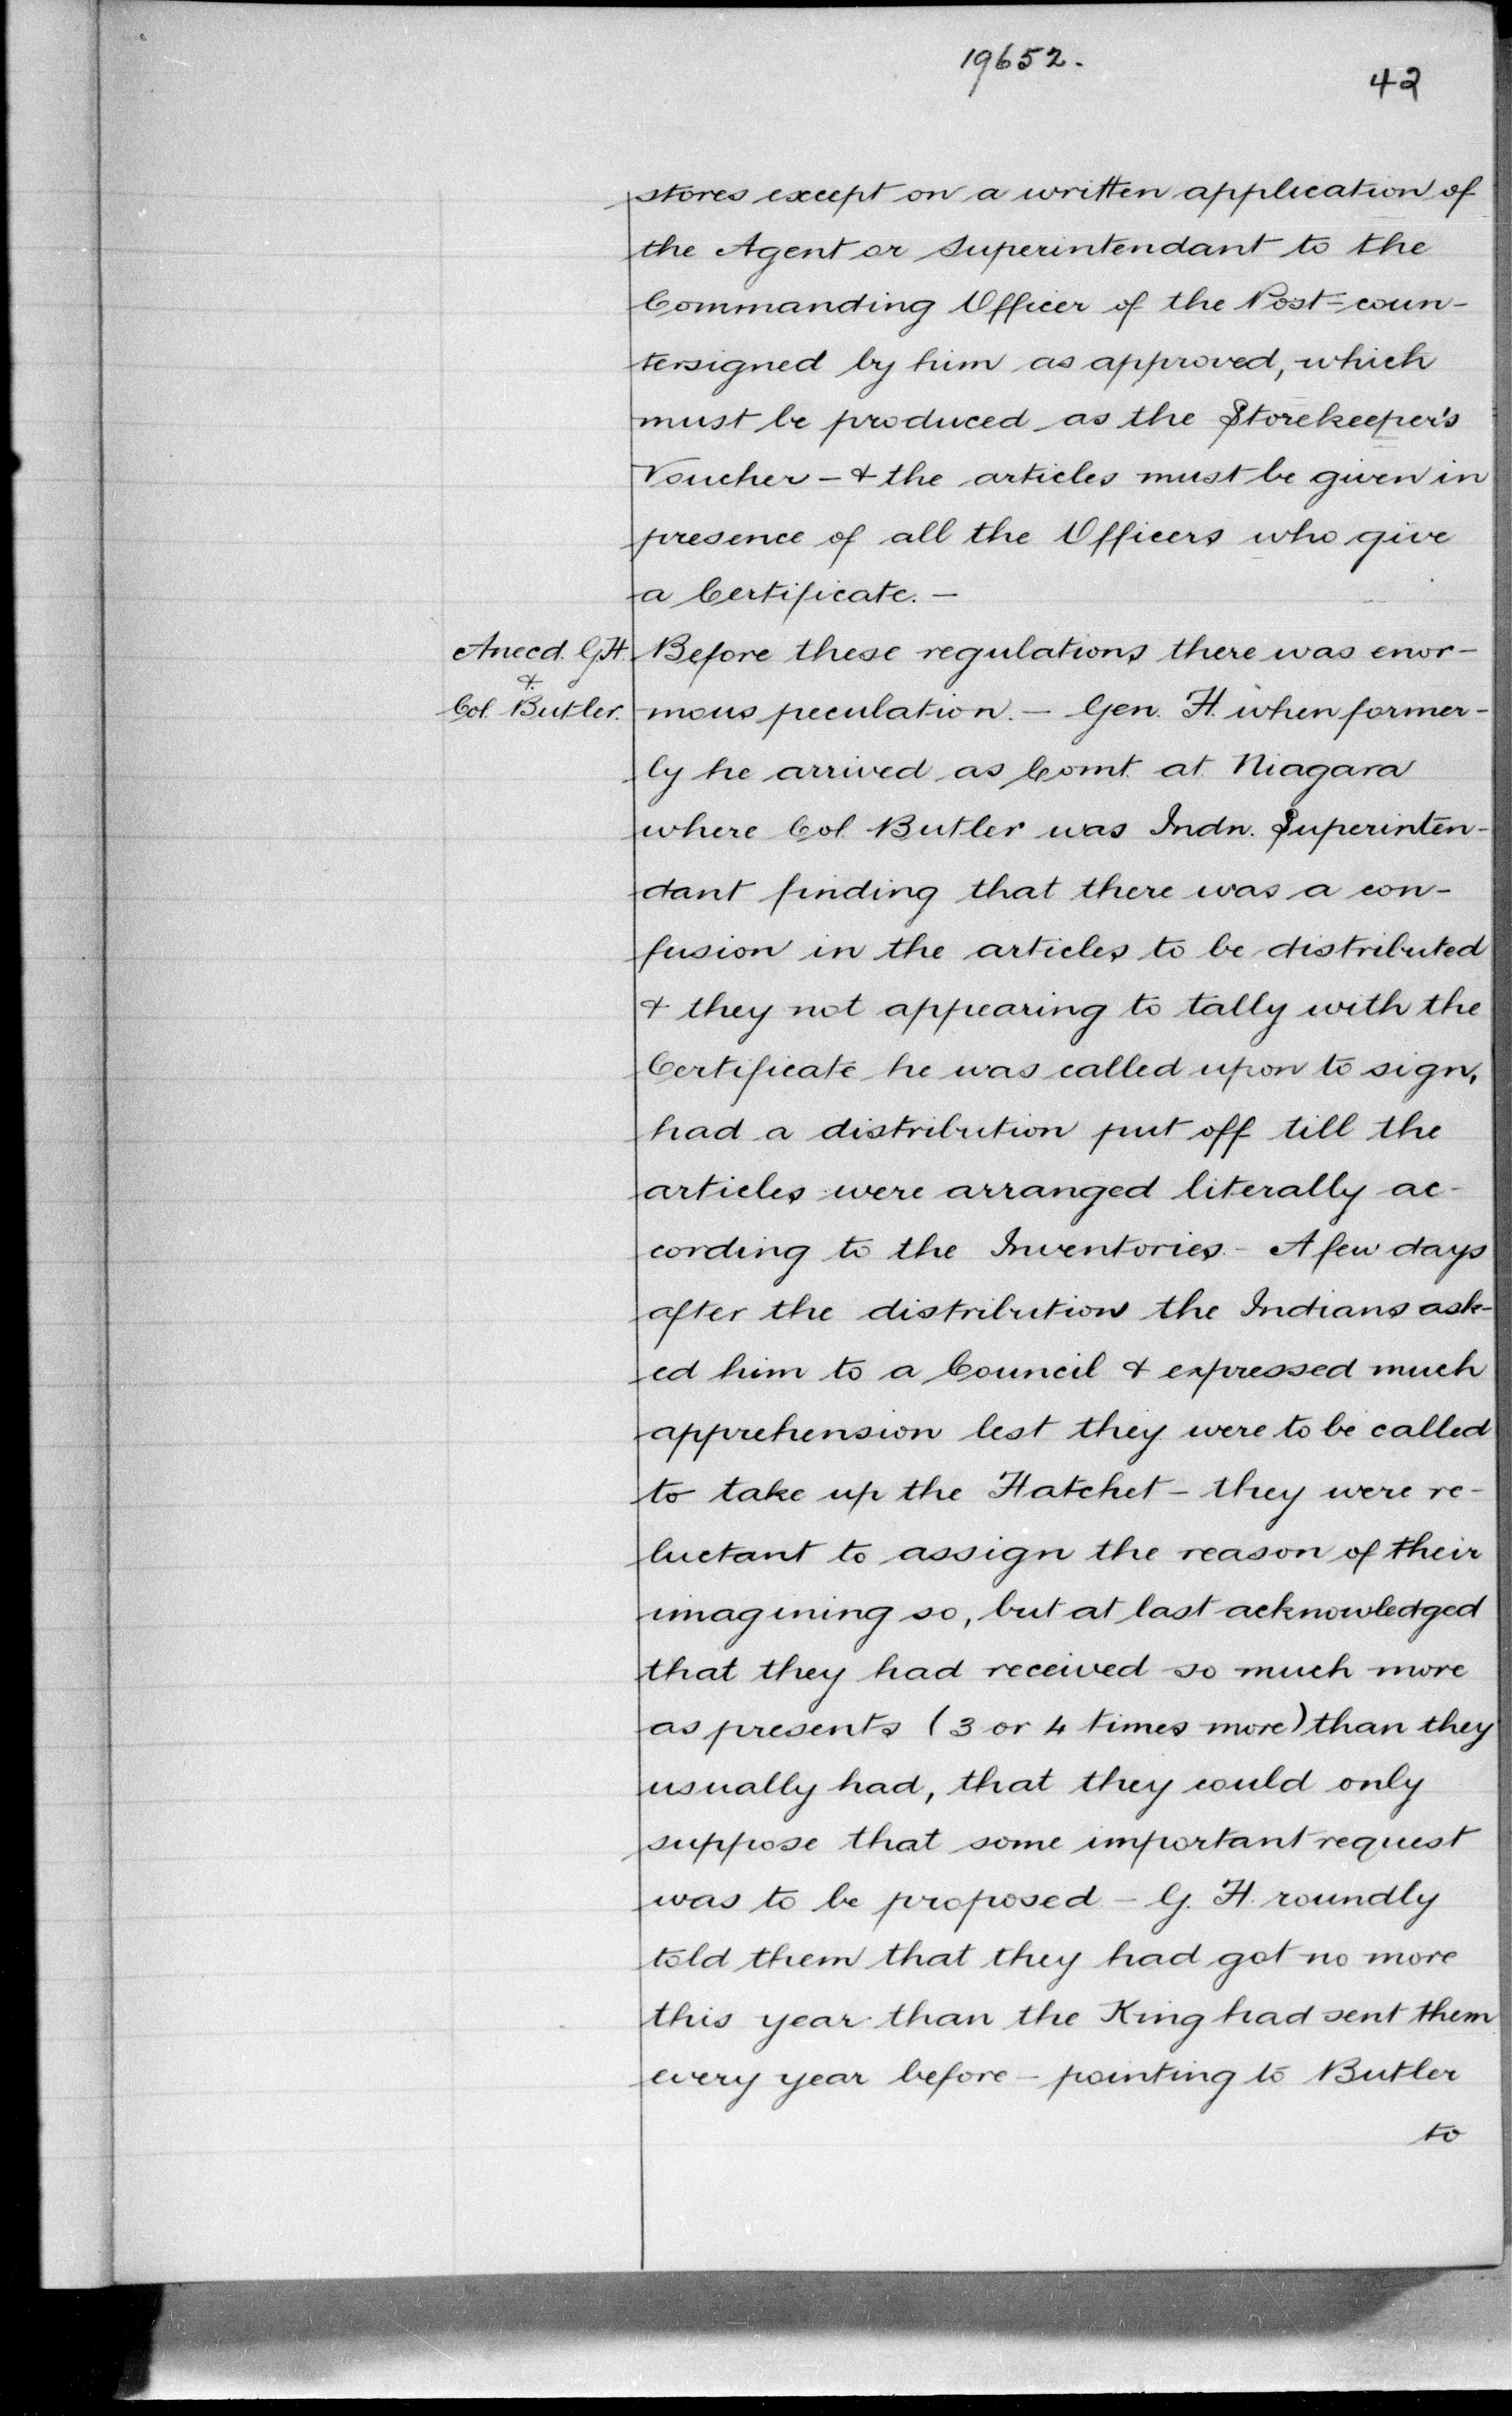 19652.
42
stores except on a written application of
the Agent or Superintendant to the
Commanding Officer of the Post = coun-
tersigned by him as approved, which
must be produced as the Storekeeper's
Voucher - & the articles must be given in
presence of all the Officers who give
a Certificate. -
Anecd. G.H.
&
Col. Butler.
Before these regulations there was enor-
mous peculation. - Gen. H. when former-
ly he arrived as Comt. at Niagara
where Col. Butler was Indn. Superinten-
dant finding that there was a con-
fusion in the articles to be distributed
& they not appearing to tally with the
Certificate he was called upon to sign,
had a distribution put off till the
articles were arranged literally ac-
cording to the Inventories. - A few days
after the distribution the Indians ask-
ed him to a Council & expressed much
apprehension lest they were to be called
to take up the Hatchet - they were re-
luctant to assign the reason of their
imagining so, but at last acknowledged
that they had received so much more
as presents (3 or 4 times more) than they
usually had, that they could only
suppose that some important request
was to be proposed - G. H. roundly
told them that they had got no more
this year than the King had sent them
every year before - pointing to Butler
to